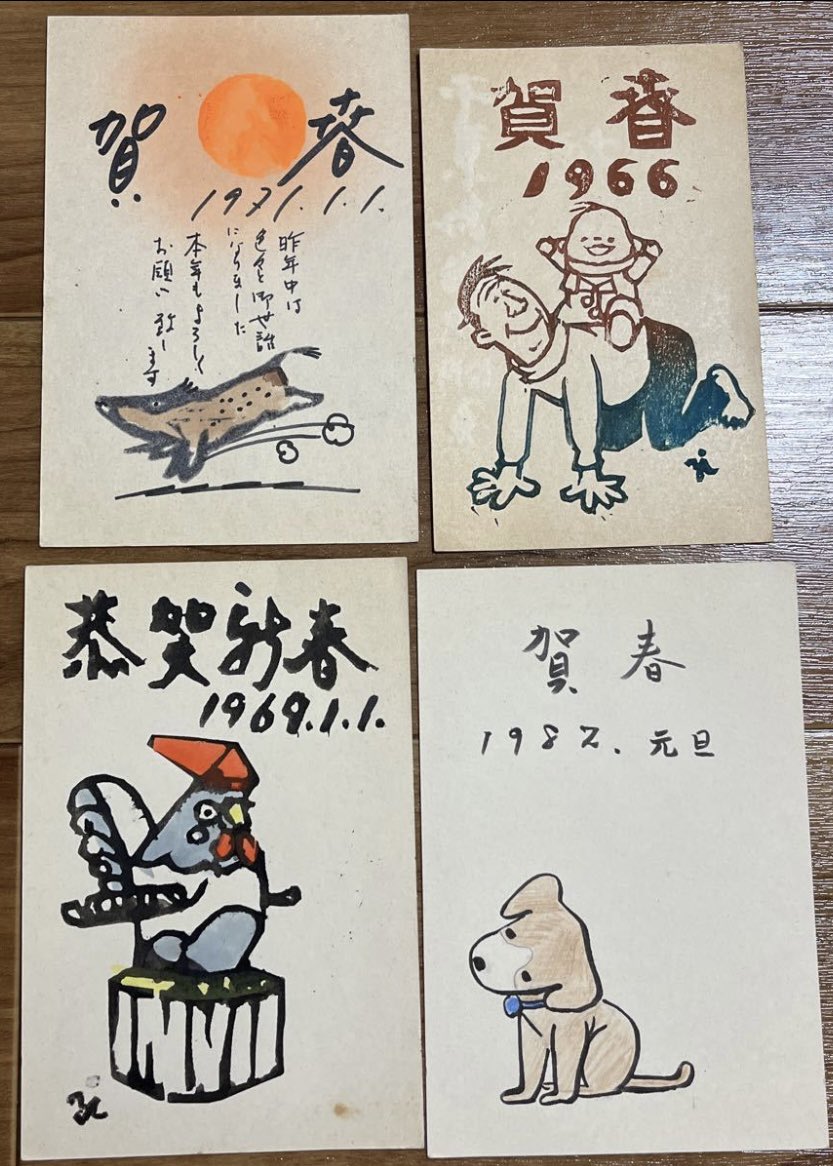 賀春
1971.1.1.
昨年中は
色々と御世話
になりました
本年もよろしく
お願い致します
賀春
1966
恭賀新春
1969.1.1.
賀春
1982.元旦